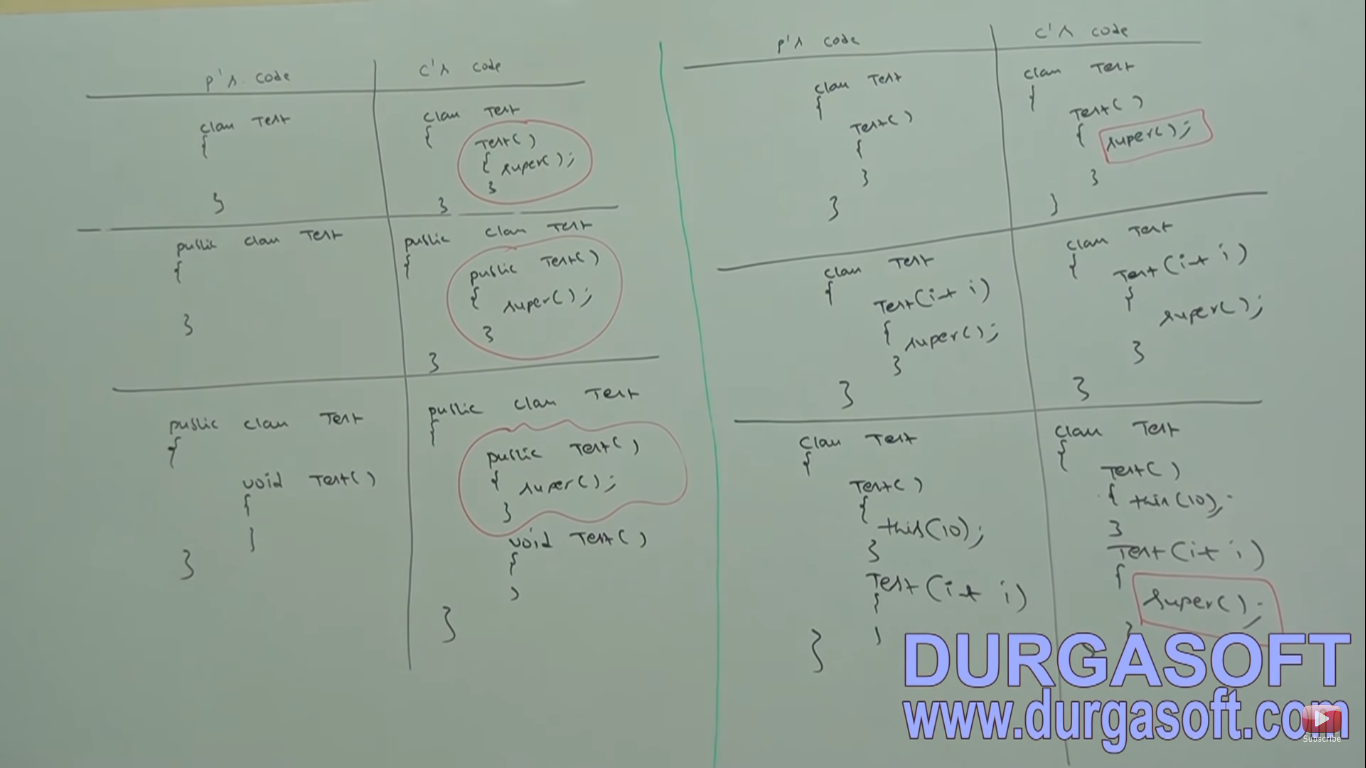 P's code
C's code
class Test
{
}
class Test
{
Test()
{ super();
}
}
public class Test
{
}
public class Test
{
public Test()
{
super();
}
}
public class Test
{
void Test()
{
}
}
public class Test
{
public Test()
{
super();
}
void Test()
{
}
}
P's code
C's code
class Test
{
Test()
{
}
}
class Test
{
Test()
{ super();
}
}
class Test
{
Test(int i)
{ super();
}
}
class Test
{
Test(int i)
{
super();
}
}
class Test
{
Test()
{
this(10);
}
Test(int i)
{
}
}
class Test
{
Test()
{ this(10);
}
Test(int i)
{
super();
}
DURGASOFT
www.durgasoft.com
Subscribe